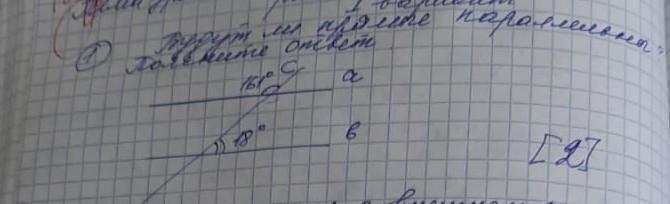 1 вариант
① Будут ли прямые параллельны?
Поясните ответ.
161° c
a
18° в
[2]